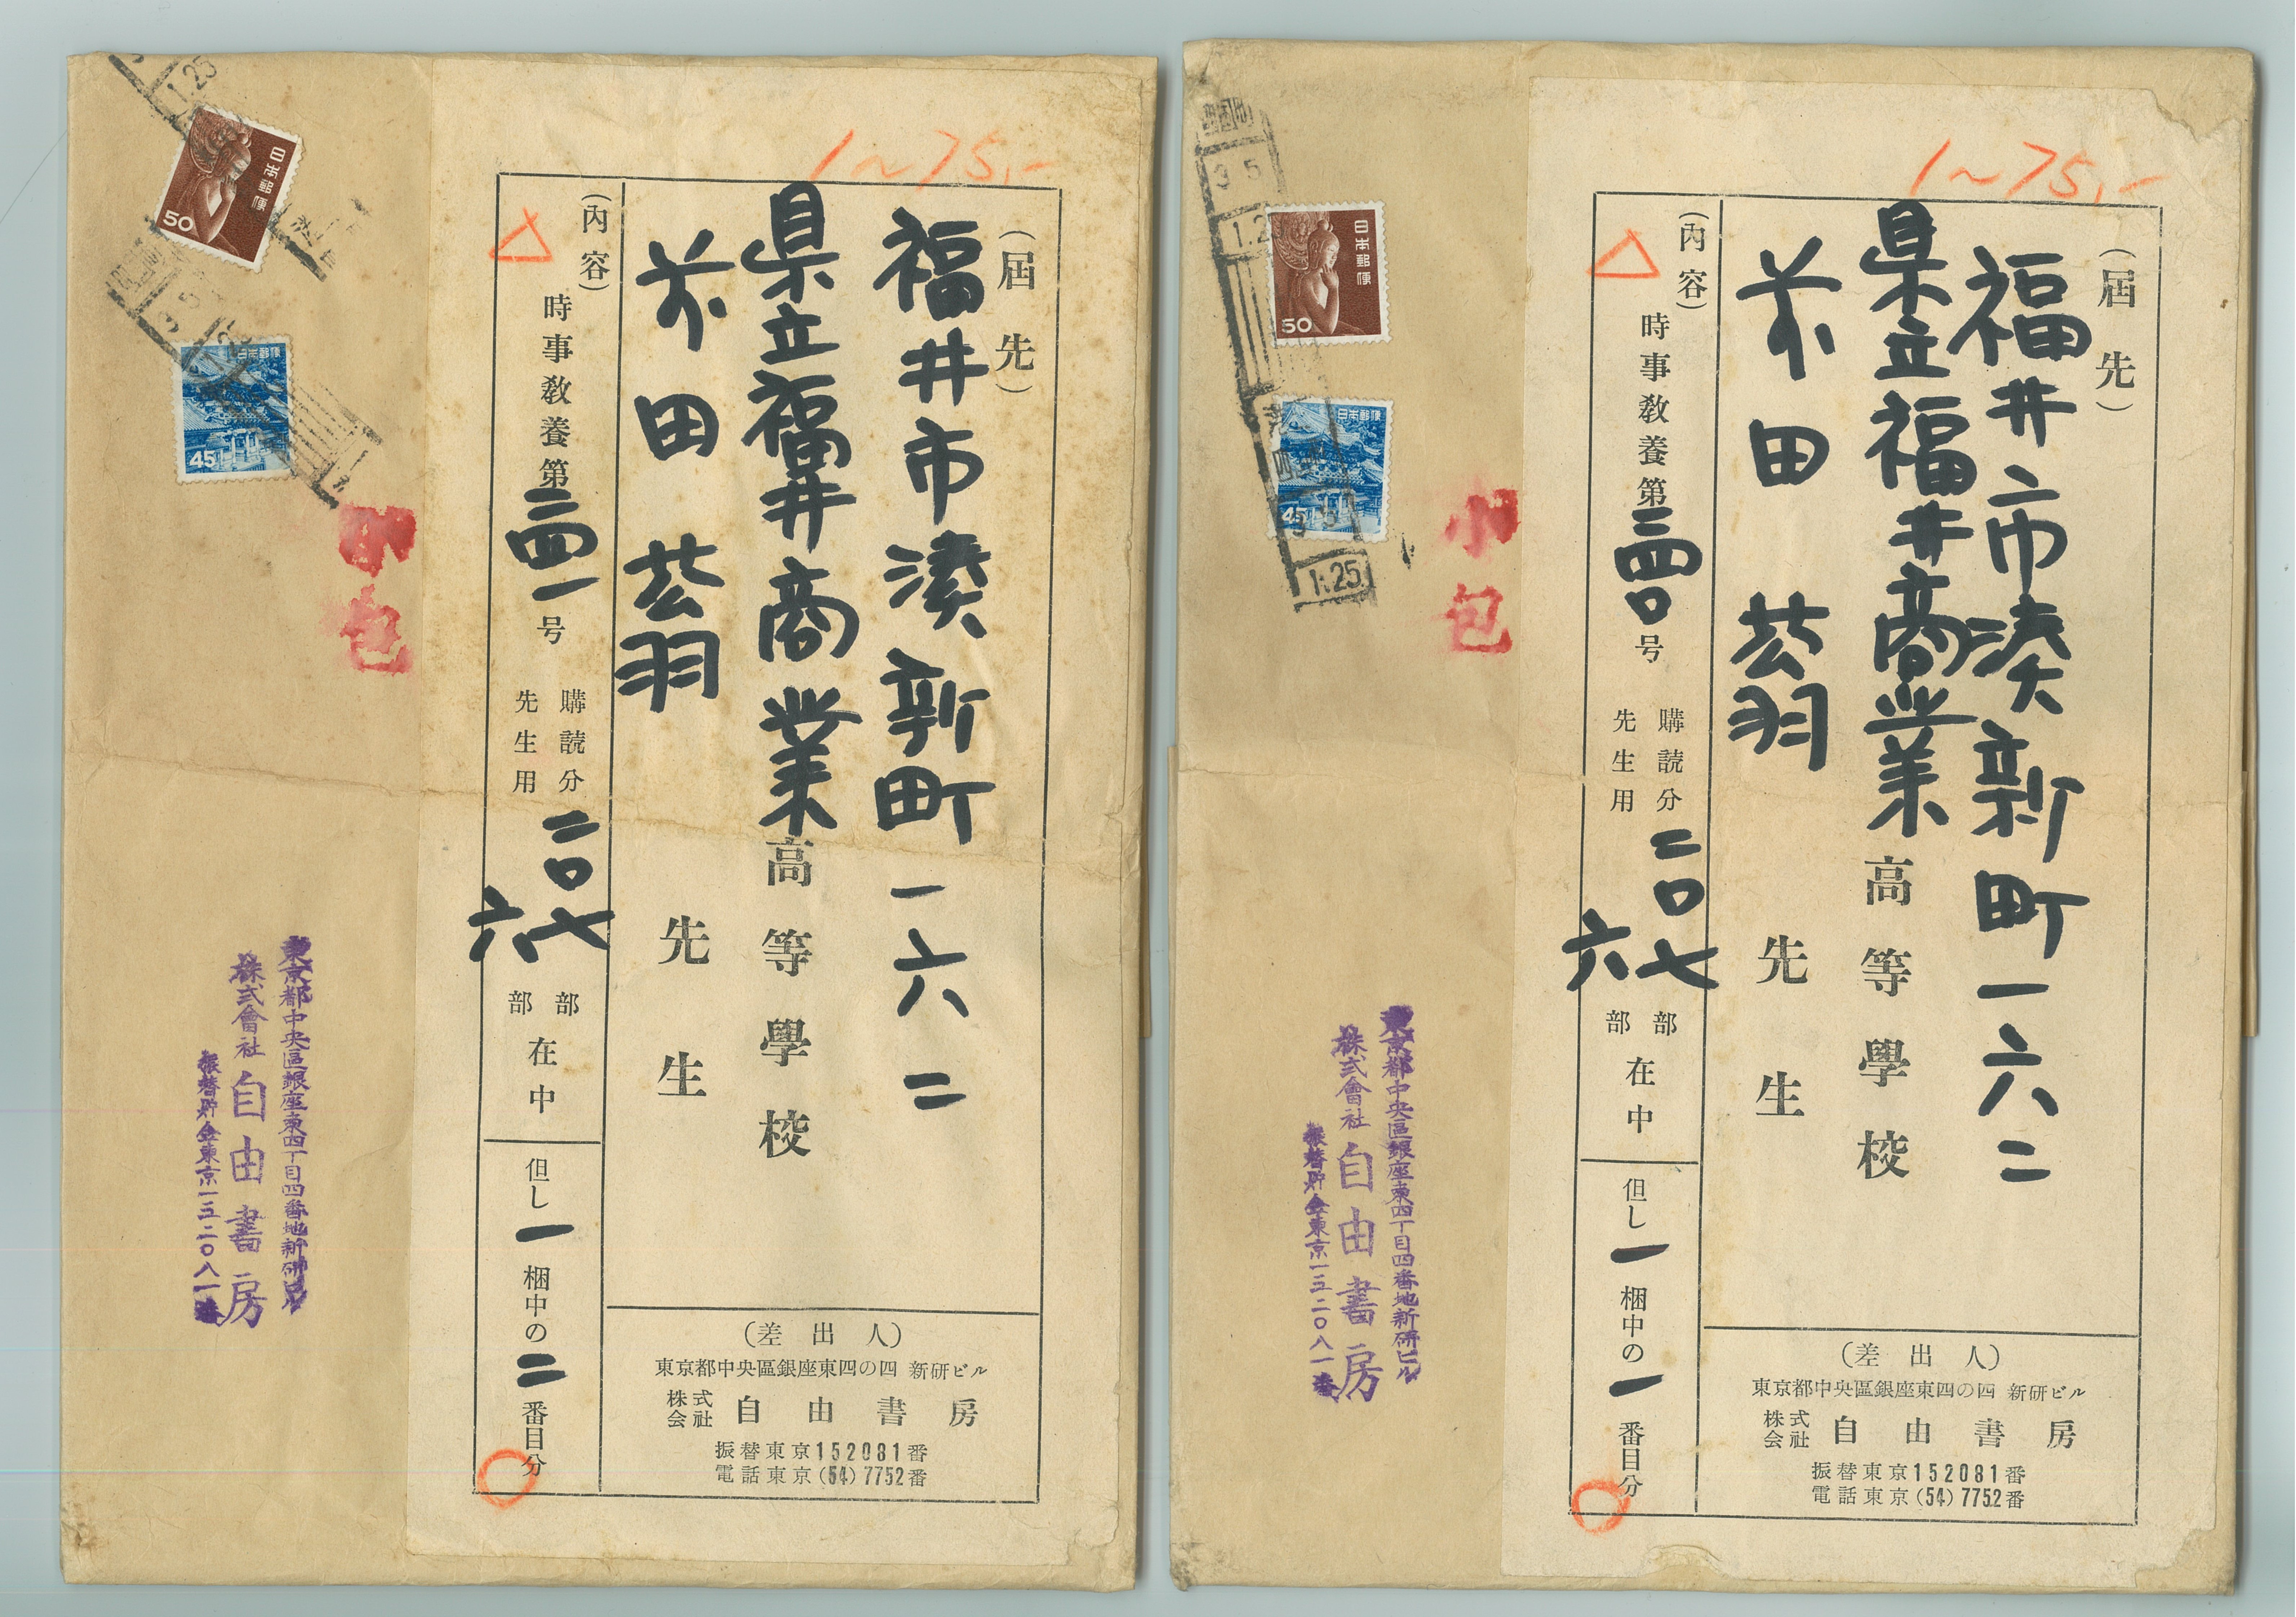 1~75,-
(届先)
福井市湊新町一六二
県立福井商業高等學校
前田 芸羽 先生
(內容)
時事教養第三四一号
購読分 二〇七部
先生用 六部
在中
但し一梱中の二番目分
(差出人)
東京都中央區銀座東四の四 新研ビル
株式会社 自由書房
振替東京152081番
電話東京(54)7752番
日本郵便
50
日本郵便
45
1.25
小包
東京都中央區銀座東四丁目四番地新研ビル
株式會社 自由書房
振替貯金東京一五二〇八一番
1~75,-
(届先)
福井市湊新町一六二
県立福井商業高等學校
前田 芸羽 先生
(內容)
時事教養第三四〇号
購読分 二〇七部
先生用 六部
在中
但し一梱中の一番目分
(差出人)
東京都中央區銀座東四の四 新研ビル
株式会社 自由書房
振替東京152081番
電話東京(54)7752番
3 5
日本郵便
50
日本郵便
45
1.25
小包
東京都中央區銀座東四丁目四番地新研ビル
株式會社 自由書房
振替貯金東京一五二〇八一番